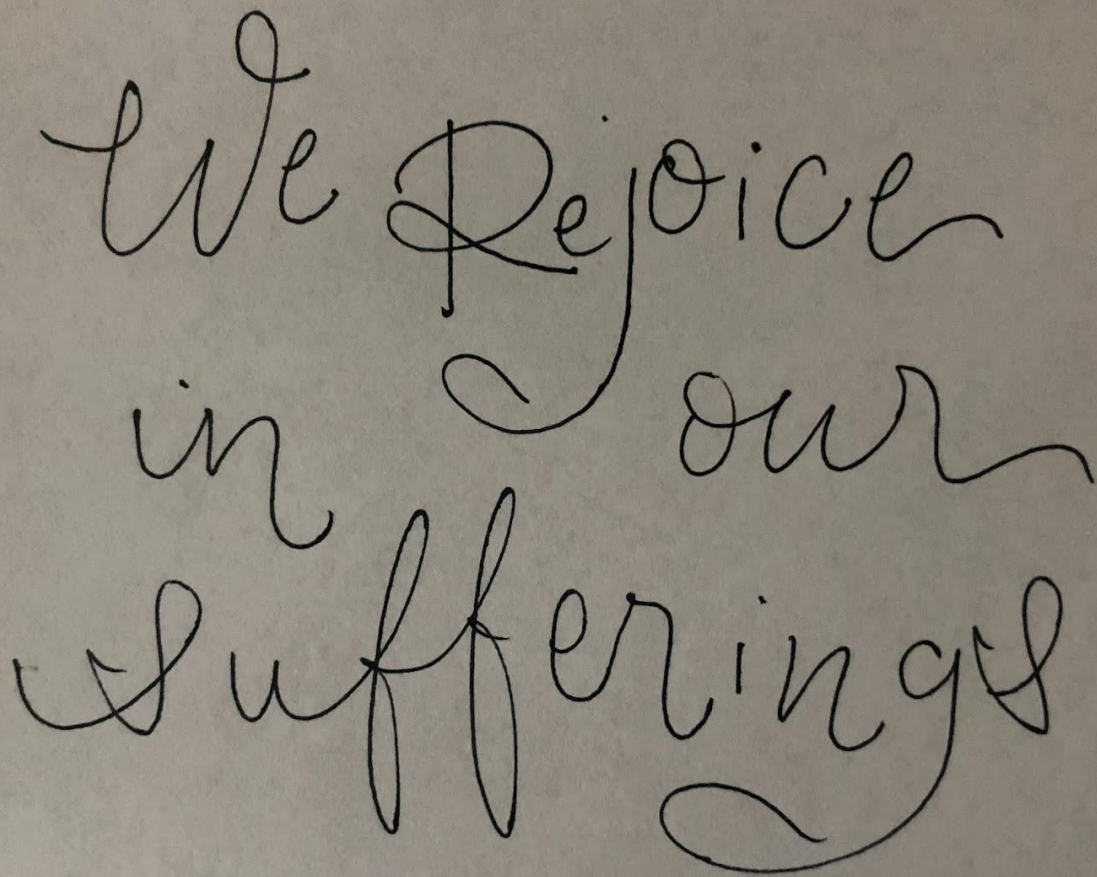 We Rejoice
in our
sufferings